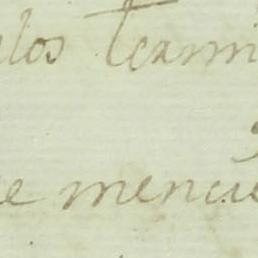 los termi
e mencie